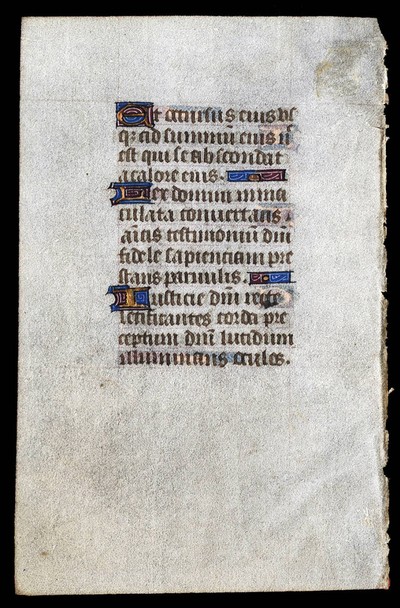 Et occursus eius vs
q; ad summū eius n̄
est qui se abscondat
a calore eius.
Lex domini inma
culata convertens
aīas testimoniū dn̄i
fidele sapienciam pre
stans parvulis.
Iusticie dn̄i recte
letificantes corda pre
ceptum dn̄i lucidum
illuminans oculos.